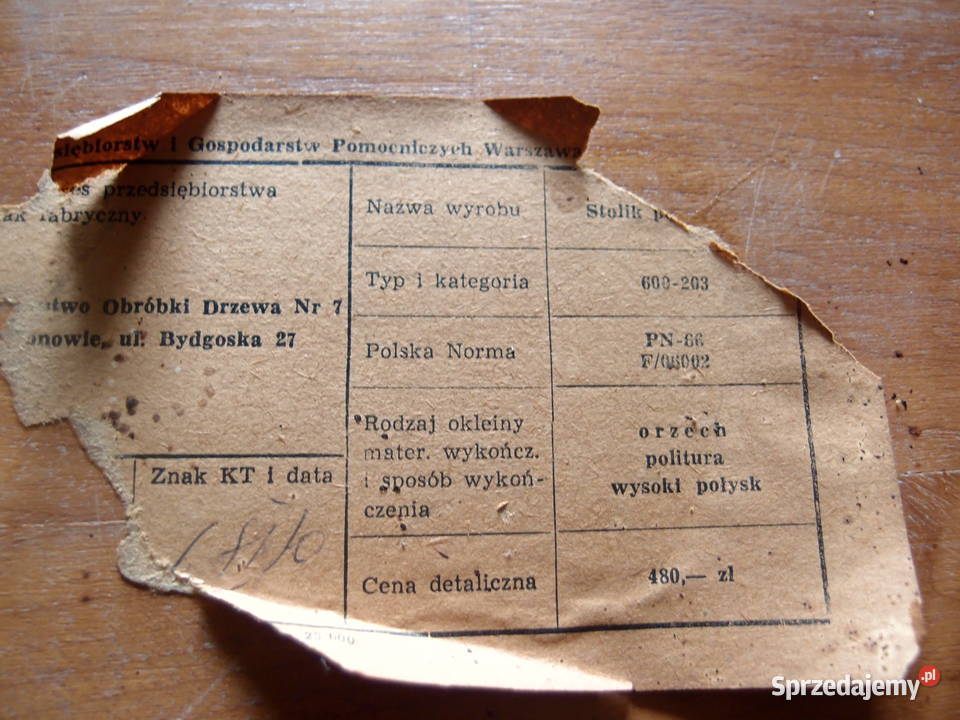 siębiorstw i Gospodarstw Pomocniczych Warszawa
przedsiębiorstwa
fabryczny
Nazwa wyrobu
Stolik
Typ i kategoria
600-203
Obróbki Drzewa Nr 7
ul. Bydgoska 27
Polska Norma
PN-66
F/06002
Rodzaj okleiny
mater. wykończ.
i sposób wykoń-
czenia
orzech
politura
wysoki połysk
Znak KT i data
Cena detaliczna
480,— zł
Sprzedajemy.pl